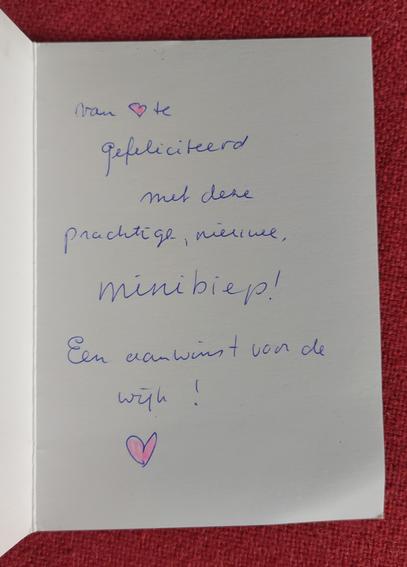 van ♡te
gefeliciteerd
met deze
prachtige, nieuwe,
minibiep!
Een aanwinst voor de
wijk!
♡